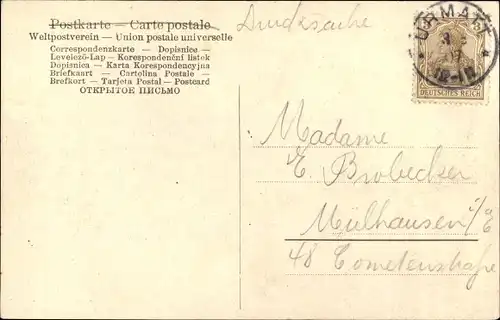 Postkarte — Carte postale
Weltpostverein — Union postale universelle
Correspondenzkarte — Dopisnice —
Levelező-Lap — Korespondenční lístek
Dopisnica — Karta Korespondencyjna
Briefkaart — Cartolina Postale —
Brefkort — Tarjeta Postal — Postcard
ОТКРЫТОЕ ПИСЬМО
Drucksache
DEUTSCHES REICH
Madame
E. Brobecker
Mülhausen i/E
48 Cometenstraße